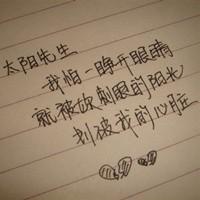 太阳先生
我怕一睁开眼睛
就被你刺眼的阳光
刬破我的心脏